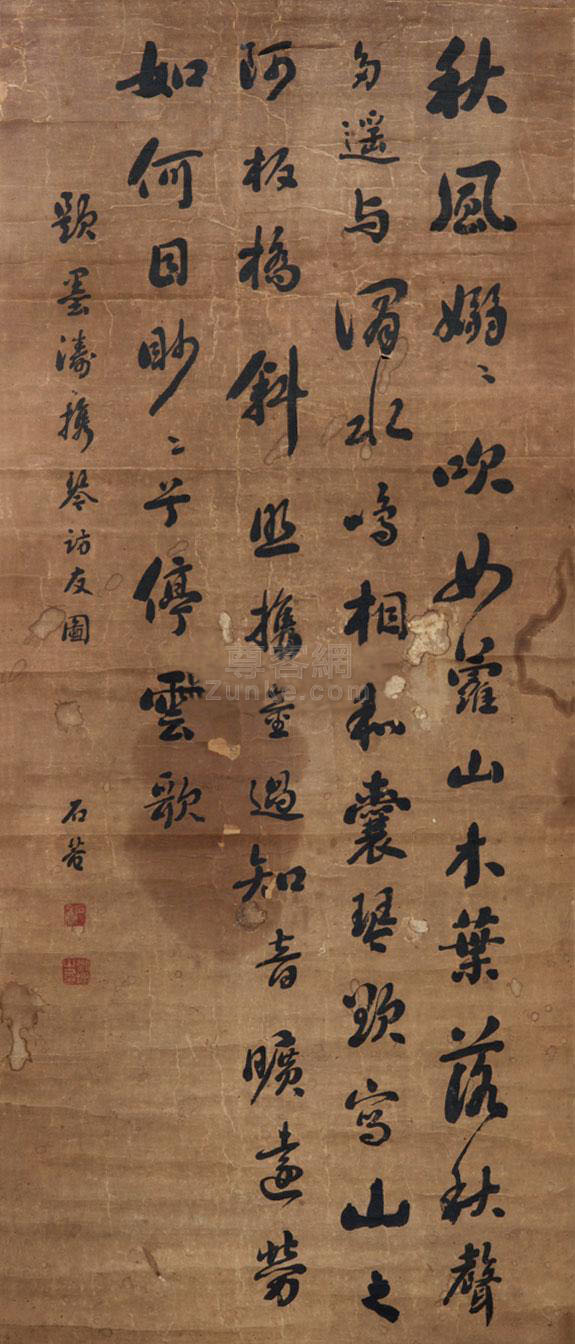 秋風嫋〻吹女蘿山木葉落秋聲
多遥与澗水鳴相和囊琴寫山之
阿板橋斜照攜過知音曠遠勞
如何目眇〻兮停雲歌
題墨濤攜琴訪友圖
石菴
尊客網
Zunke.com